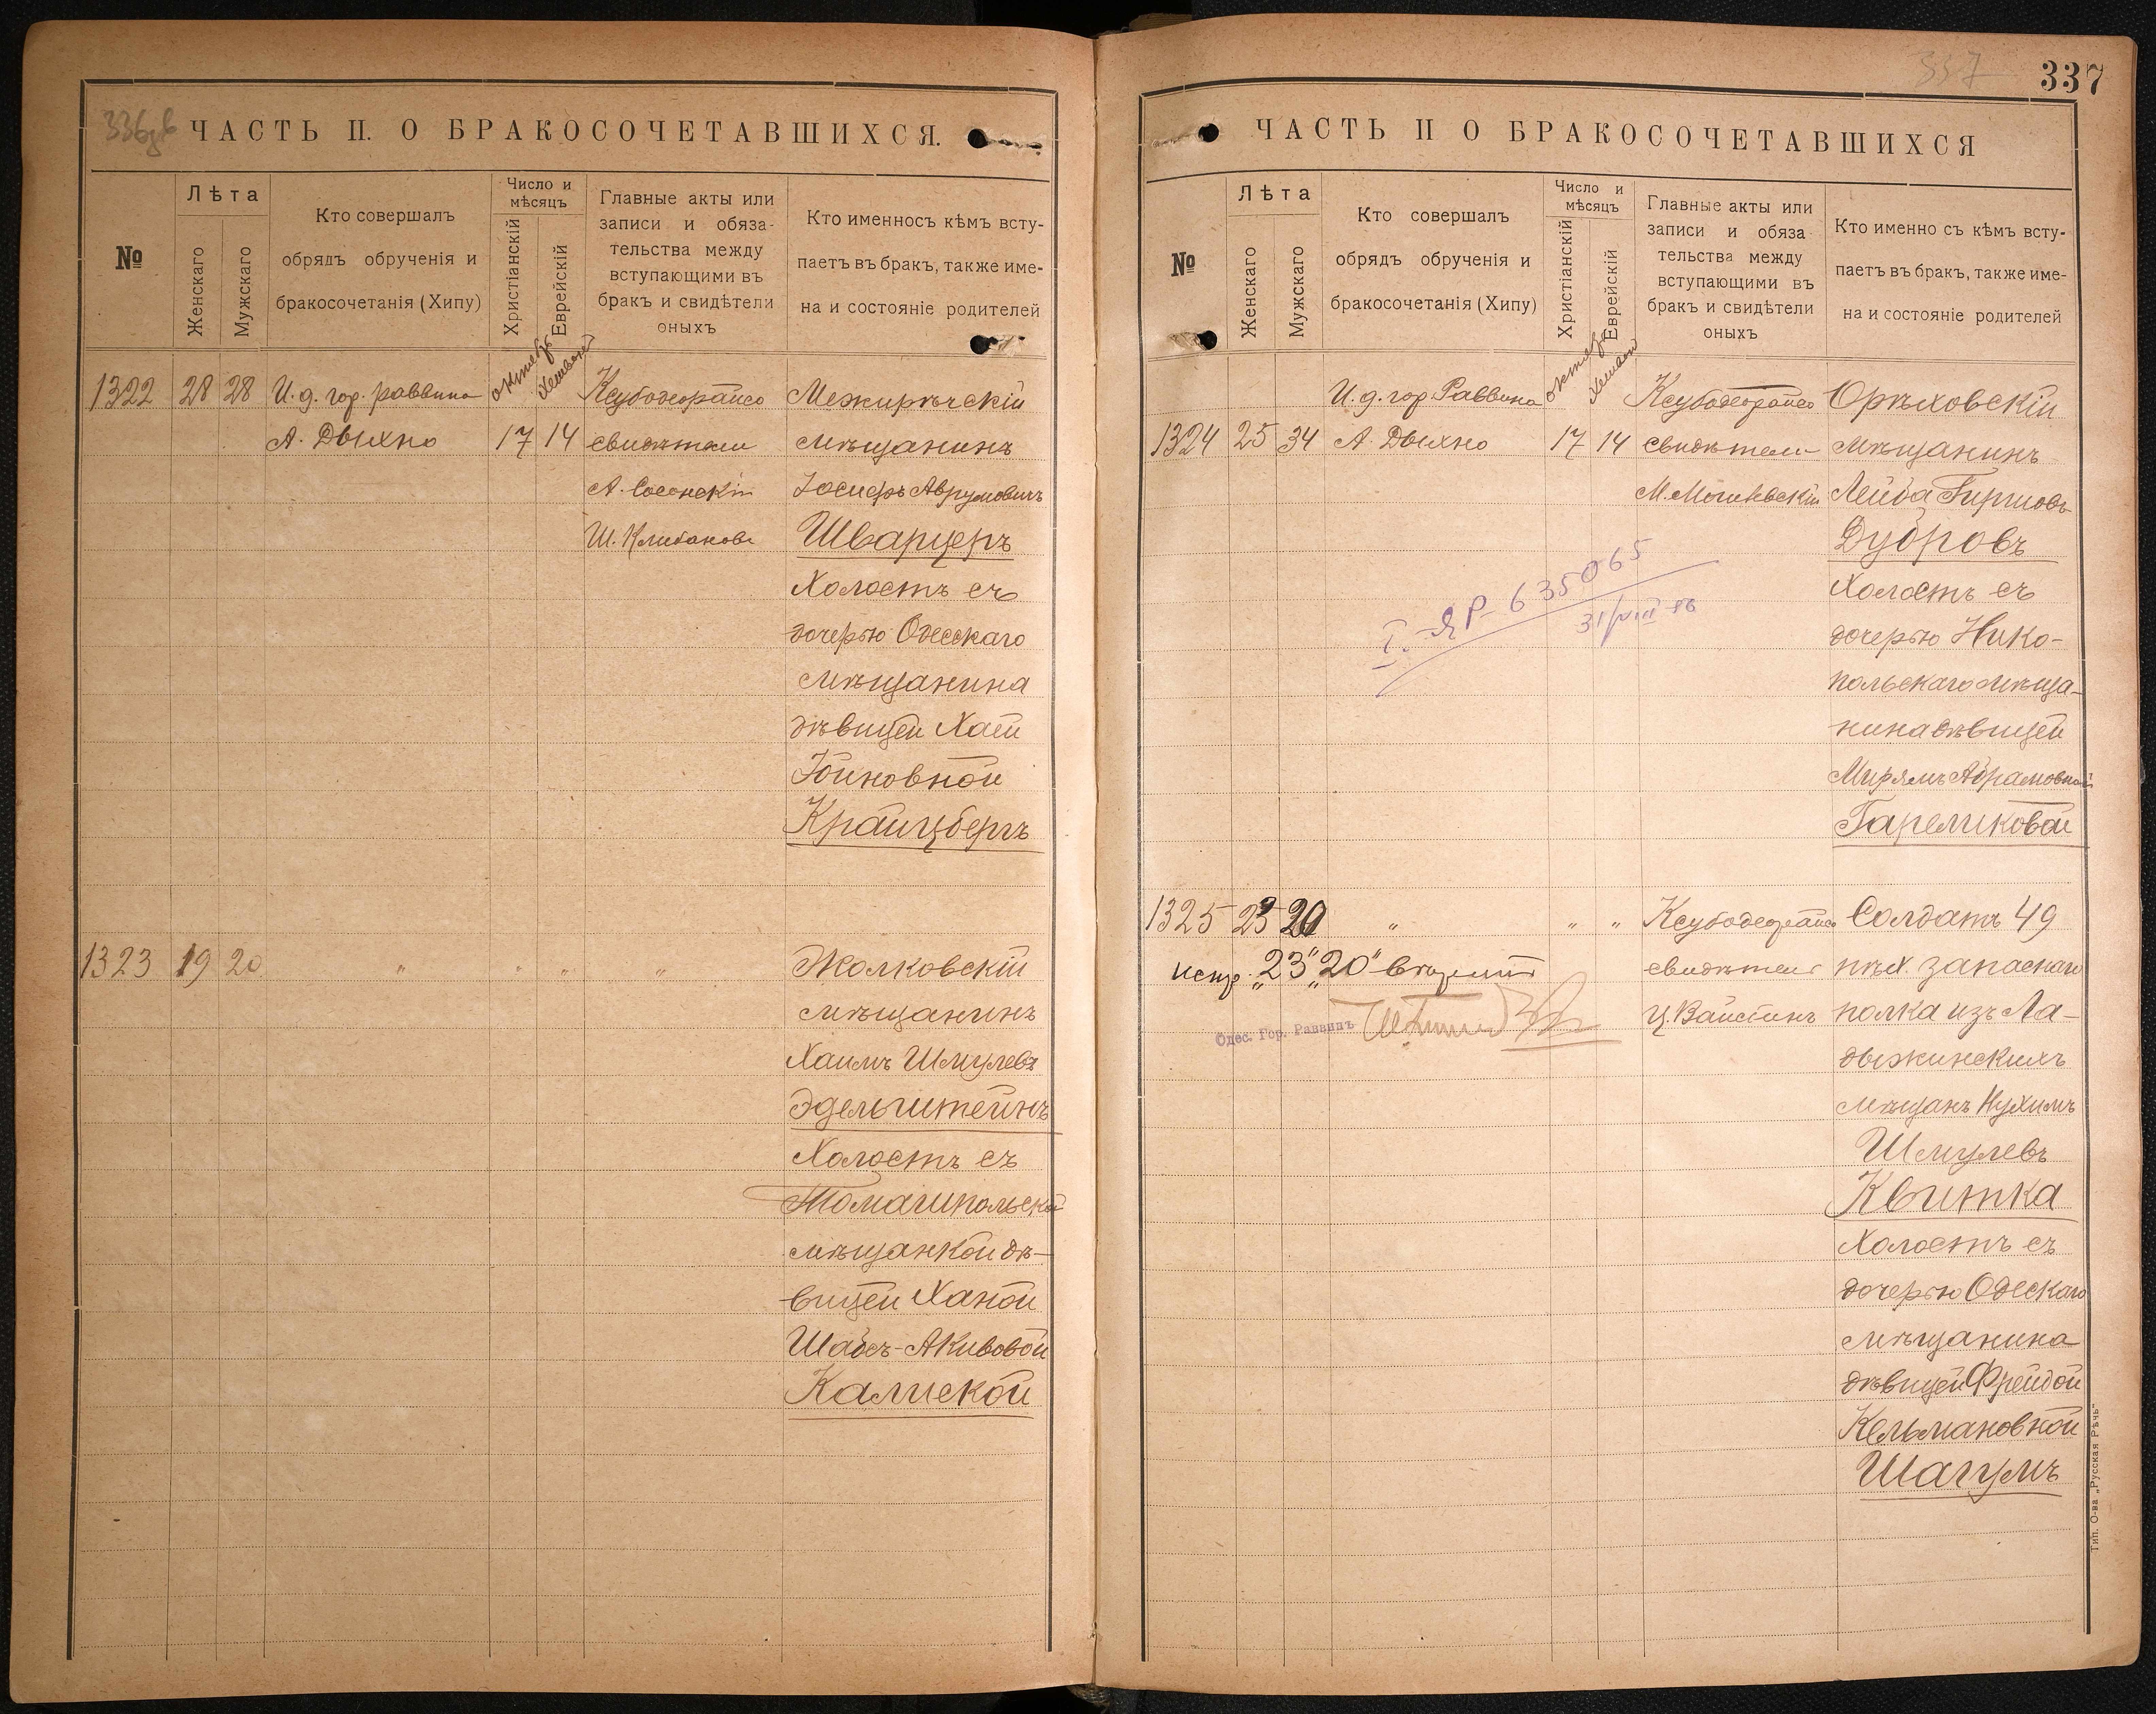 336 об
ЧАСТЬ II. О БРАКОСОЧЕТАВШИХСЯ.
№
Лѣта
Женскаго
Мужскаго
Кто совершалъ
обрядъ обрученія и
бракосочетанія (Хипу)
Число и
мѣсяцъ
Христіанскій
Еврейскій
Главные акты или
записи и обяза-
тельства между
вступающими въ
бракъ и свидѣтели
оныхъ
Кто именносъ кѣмъ всту-
паетъ въ бракъ, также име-
на и состояніе родителей
1322 28 28 И. д. гор. раввина октябр Хешвон Ксубодеорайсо Межирѣчскій
А. Дыхно 17 14 свидѣтели мѣщанинъ
А. Сосонскій Іосифъ Аврумовичъ
Ш. Клибановъ Шварцеръ
Холостъ съ
дочерью Одесскаго
мѣщанина
дѣвицей Хаей
Іойновной
Крайцбергъ
1323 19 20 " " " " Жолковскій
мѣщанинъ
Хаимъ Шмулевъ
Эдельштейнъ
Холостъ съ
Томашпольской
мѣщанкой дѣ-
вицей Ханой
Шабсъ-Акивовой
Калиской
337
337
ЧАСТЬ II О БРАКОСОЧЕТАВШИХСЯ
№
Лѣта
Женскаго
Мужскаго
Кто совершалъ
обрядъ обрученія и
бракосочетанія (Хипу)
Число и
мѣсяцъ
Христіанскій
Еврейскій
Главные акты или
записи и обяза
тельства между
вступающими въ
бракъ и свидѣтели
оныхъ
Кто именно съ кѣмъ всту-
паетъ въ бракъ, также име-
на и состояніе родителей
И. д. гор. Раввина октябр Хешвон Ксубодеорайсо Орѣховскій
1324 25 34 А. Дыхно 17 14 свидѣтели мѣщанинъ
М. Могилевскій Лейба Гиршовъ
Дубровъ
Холостъ съ
дочерью Нико-
польскаго мѣща-
нина дѣвицей
Мирямъ Абрамовной
Гареликовой
I-ЯР 635065
31/VIII
1325 23 20 " " " Ксубодеорайсо Солдатъ 49
испр. "23" "20" вѣрить свидѣтели пѣх. запаснаго
Одес. Гор. Раввинъ Ц. Вайстинъ полка изъ Ла-
дыжинскихъ
мѣщанъ Нухимъ
Шмулевъ
Квитка
Холостъ съ
дочерью Одескаго
мѣщанина
дѣвицей Фрейдой
Кельмановной
Шагумъ
Тип. О-ва „Русская Рѣчь"